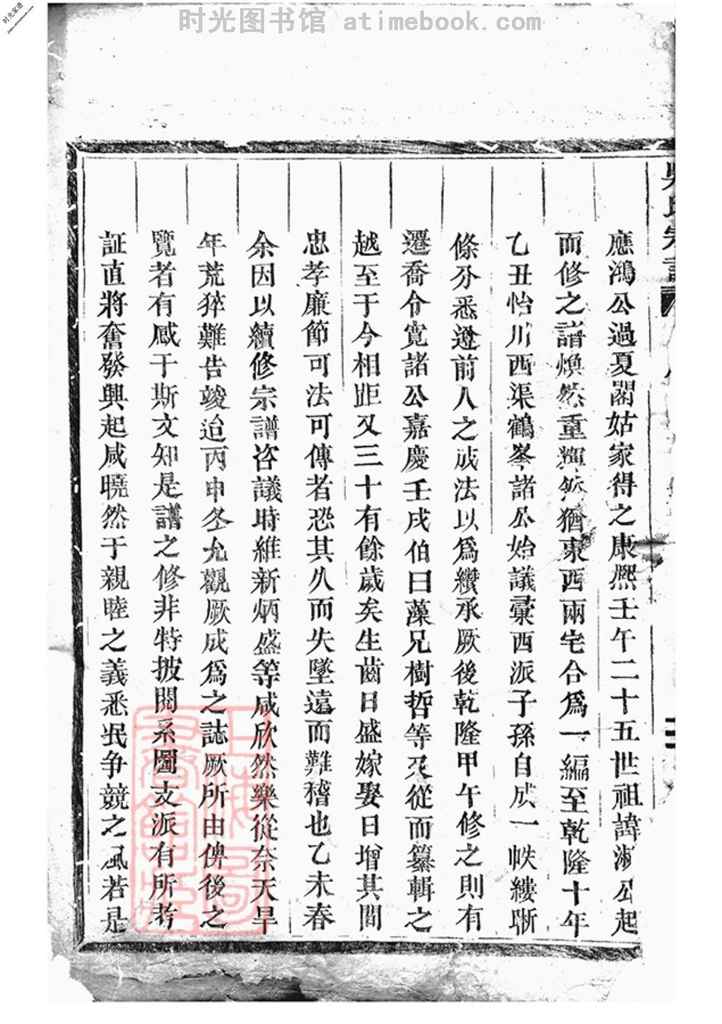 时光图书馆 atimebook.com
時光家譜
吳氏宗譜
應鴻公過夏閣姑家得之康熙壬午二十五世祖諱淑公起
而修之譜煥然重輝然猶東西兩宅合爲一編至乾隆十年
乙丑怡川西渠鶴峯諸公始議彙西派子孫自成一帙縷晰
條分悉遵前人之成法以爲纘承厥後乾隆甲午修之則有
遷喬令寬諸公嘉慶壬戌伯曰藻兄樹哲等又從而纂輯之
越至于今相距又三十有餘歲矣生齒日盛嫁娶日增其間
忠孝廉節可法可傳者恐其久而失墜遠而難稽也乙未春
余因以續修宗譜咨議時維新炳盛等咸欣然樂從奈天旱
年荒猝難告竣迨丙申冬允觀厥成爲之誌厥所由俾後之
覽者有感于斯文知是譜之修非特披閱系圖支派有所考
証直將奮發興起咸曉然于親睦之義悉泯争競之風若是